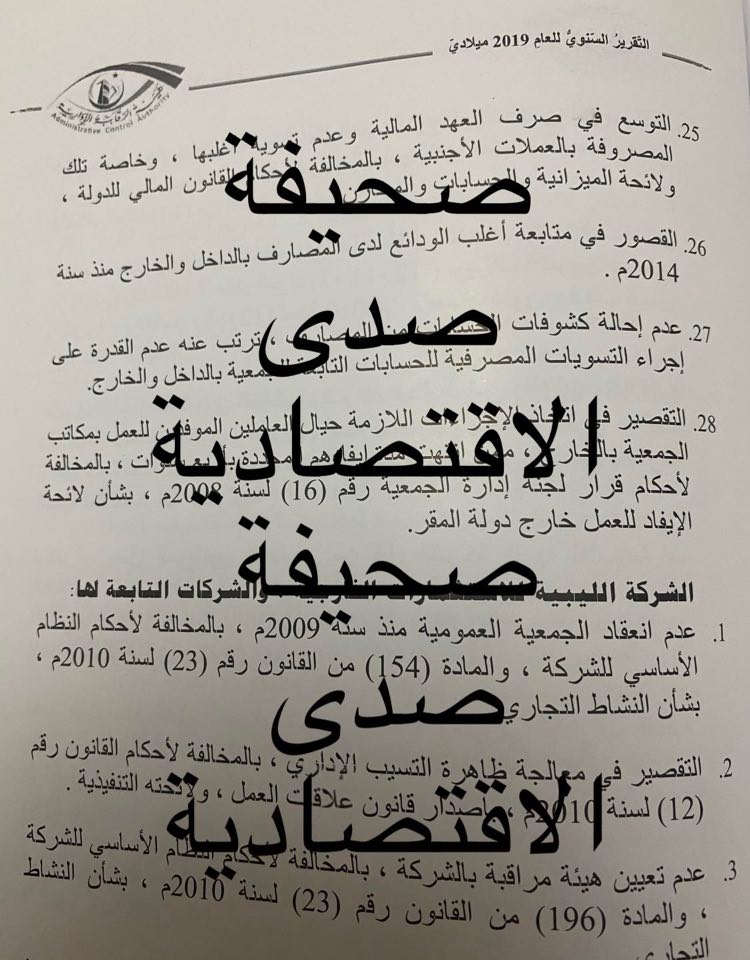 التّقريرُ السّنويُّ للعامِ 2019 ميلاديّ
هيئة الرقابة الإدارية
Administrative Control Authority
25. التوسع في صرف العهد المالية وعدم تسوية أغلبها ، وخاصة تلك
المصروفة بالعملات الأجنبية ، بالمخالفة لأحكام القانون المالي للدولة ،
ولائحة الميزانية والحسابات والمخازن
صحيفة
26. القصور في متابعة أغلب الودائع لدى المصارف بالداخل والخارج منذ سنة
2014م .
صدى
27. عدم إحالة كشوفات الحسابات من المصارف ، ترتب عنه عدم القدرة على
إجراء التسويات المصرفية للحسابات التابعة للجمعية بالداخل والخارج.
الاقتصادية
28. التقصير في اتخاذ الإجراءات اللازمة حيال العاملين الموفدين للعمل بمكاتب
الجمعية بالخارج ، ممن انتهت مدة إيفادهم المحددة بأربع سنوات ، بالمخالفة
لأحكام قرار لجنة إدارة الجمعية رقم (16) لسنة 2008م ، بشأن لائحة
الإيفاد للعمل خارج دولة المقر.
صحيفة
الشركة الليبية للاستثمارات الخارجية والشركات التابعة لها:
1. عدم انعقاد الجمعية العمومية منذ سنة 2009م ، بالمخالفة لأحكام النظام
الأساسي للشركة ، والمادة (154) من القانون رقم (23) لسنة 2010م ،
بشأن النشاط التجاري
صدى
2. التقصير في معالجة ظاهرة التسيب الإداري ، بالمخالفة لأحكام القانون رقم
(12) لسنة 2010م ، بإصدار قانون علاقات العمل ، ولائحته التنفيذية .
الاقتصادية
3. عدم تعيين هيئة مراقبة بالشركة ، بالمخالفة لأحكام النظام الأساسي للشركة
، والمادة (196) من القانون رقم (23) لسنة 2010م ، بشأن النشاط
التجاري